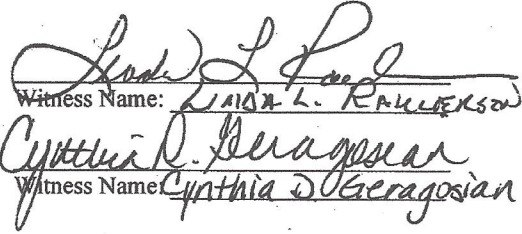 Linda L
Witness Name: LINDA L. RAULERSON
Cynthia D. Geragosian
Witness Name: Cynthia D Geragosian